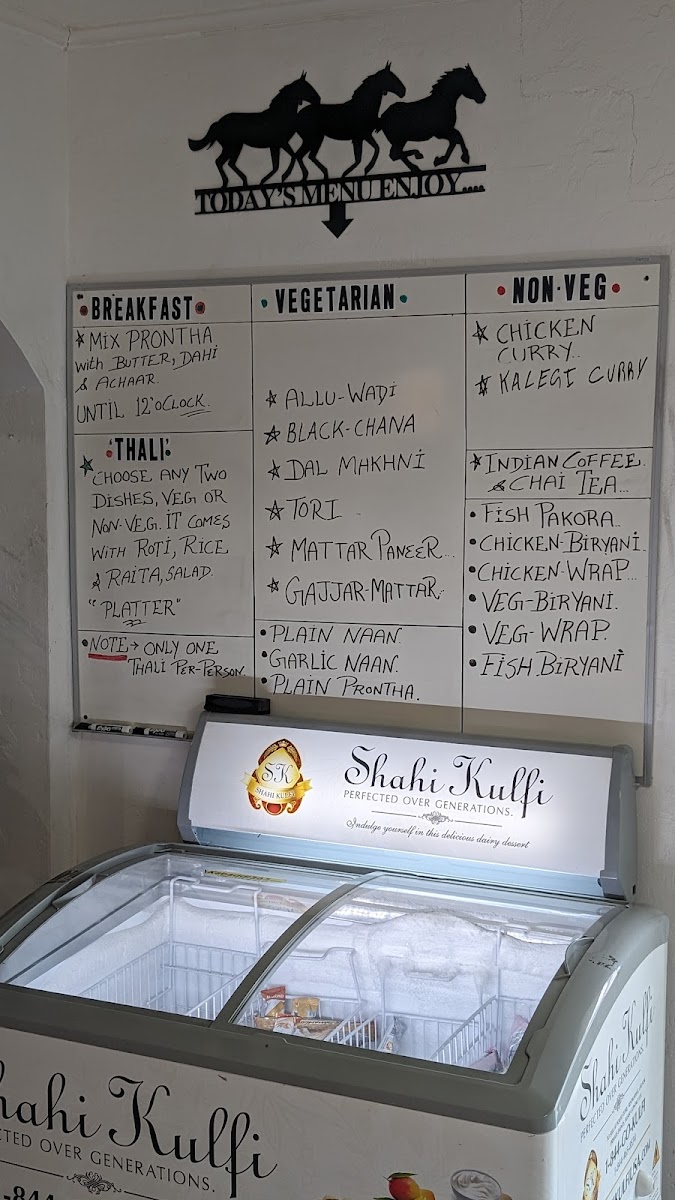 TODAY'S MENU ENJOY....
BREAKFAST
MIX PRONTHA
with BUTTER, DAHI
& ACHAAR.
UNTIL 12'OCLOCK.
THALI
CHOOSE ANY TWO
DISHES, VEG OR
NON-VEG. IT COMES
WITH ROTI, RICE
& RAITA, SALAD.
"PLATTER"
NOTE → ONLY ONE
THALI PER-PERSON
VEGETARIAN
ALLU-WADI
BLACK-CHANA
DAL MAKHNI
TORI
MATTAR PANEER...
GAJJAR-MATTAR
• PLAIN NAAN.
• GARLIC NAAN.
• PLAIN PRONTHA.
NON·VEG
CHICKEN
CURRY..
KALEGI CURRY
INDIAN COFFEE.
& CHAI TEA...
• FISH PAKORA..
• CHICKEN-BIRYANI.
• CHICKEN-WRAP...
• VEG-BIRYANI.
• VEG-WRAP.
• FISH.BIRYANI
EXPO
SK
SHAHI KULFI
Shahi Kulfi
PERFECTED OVER GENERATIONS.
Indulge yourself in this delicious dairy dessert
Shahi Kulfi
PERFECTED OVER GENERATIONS.
1-844-GO-KULFI
hahi Kulfi
CTED OVER GENERATIONS.
-844